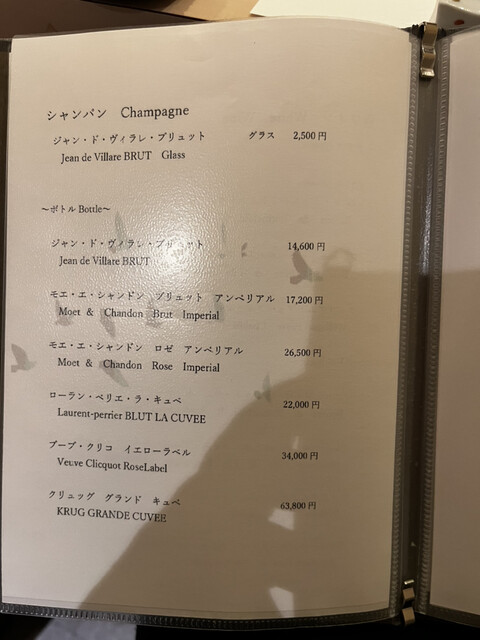 シャンパン Champagne
ジャン・ド・ヴィラレ・ブリュット グラス 2,500円
Jean de Villare BRUT Glass
〜ボトル Bottle〜
ジャン・ド・ヴィラレ・ブリュット 14,600円
Jean de Villare BRUT
モエ・エ・シャンドン ブリュット アンペリアル 17,200円
Moet & Chandon Brut Imperial
モエ・エ・シャンドン ロゼ アンペリアル 26,500円
Moet & Chandon Rose Imperial
ローラン・ペリエ・ラ・キュベ 22,000円
Laurent-perrier BLUT LA CUVEE
ブーブ・クリコ イエローラベル 34,000円
Veuve Clicquot RoseLabel
クリュッグ グランド キュベ 63,800円
KRUG GRANDE CUVEE